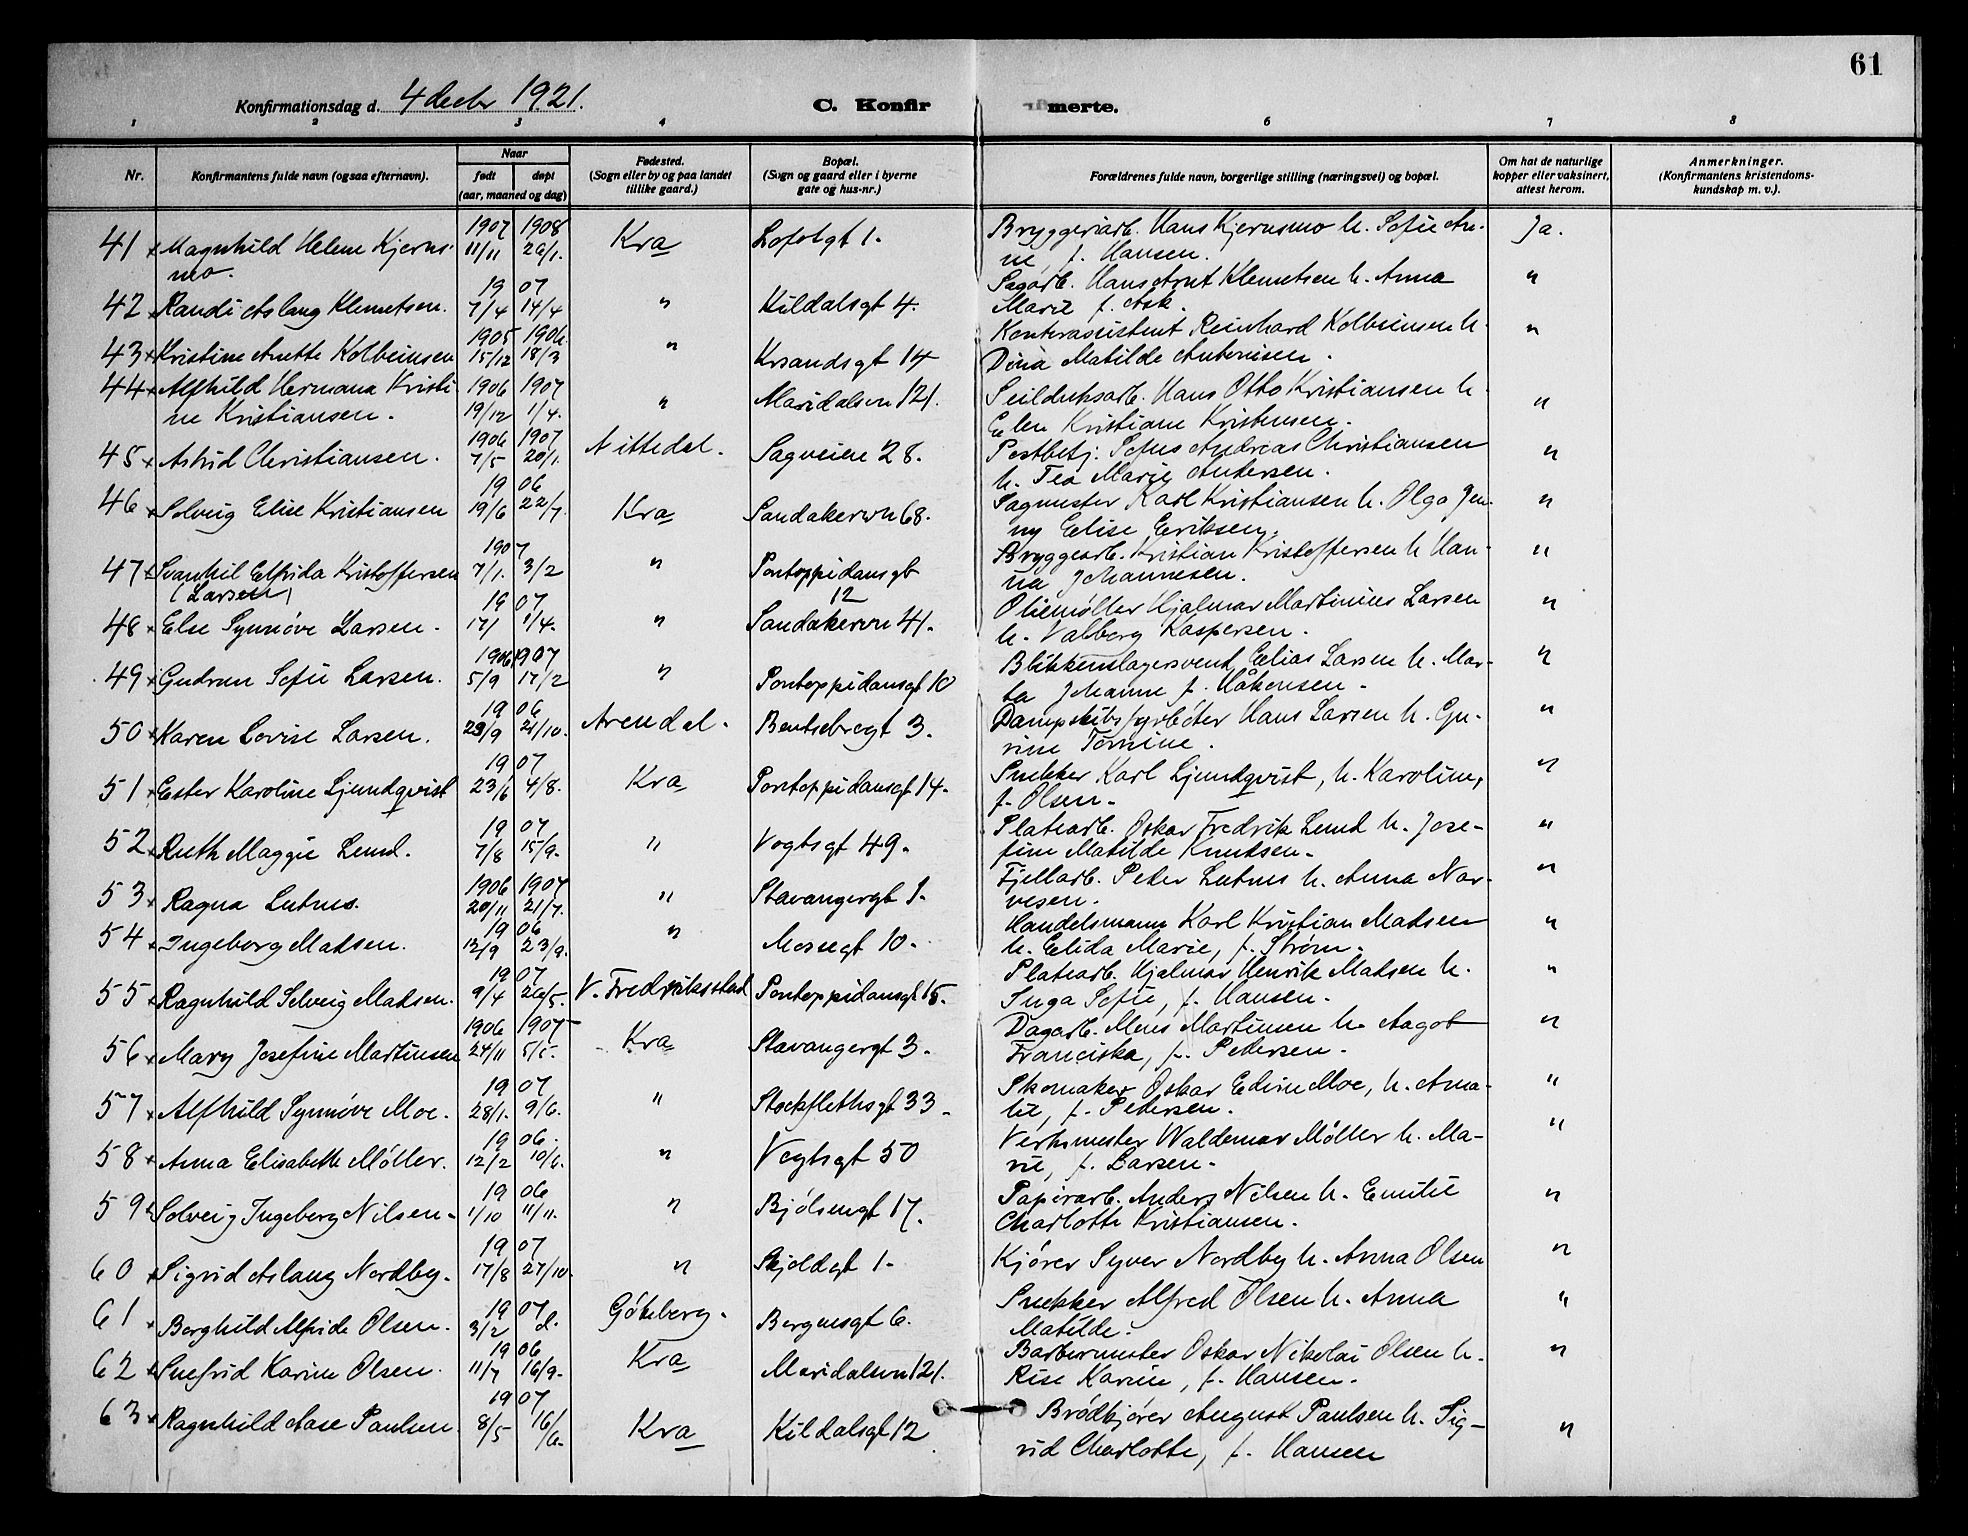 61
Konfirmationsdag d. 4 decbr 1921.
C. Konfir merte.
1 2 3 4 6 7 8
Nr. Konfirmantens fulde navn (ogsaa efternavn). Naar født døpt (aar, maaned og dag) Fødested. (Sogn eller by og paa landet tillike gaard.) Bopæl. (Sogn og gaard eller i byerne gate og hus-nr.) Forældrenes fulde navn, borgerlige stilling (næringsvei) og bopæl. Om hat de naturlige kopper eller vaksinert, attest herom. Anmerkninger. (Konfirmantens kristendomskundskap m. v.).
1907 1908
41 × Magnhild Helene Kjerns- 11/11 26/1. Kra Lofotgt 1. Bryggeriarb. Hans Kjernsmo h. Sofie An- Ja.
mo. ne, f. Hansen.
19 07
42 × Randi Aslaug Klemetsen. 7/4 14/4 " Kildalsgt 4. Sagarb. Hans Arnt Klemetsen h. Anna "
Marie f. Ask.
1905 1906
43 × Kristine Anette Kolbeinsen 15/12 18/3 " Krsandsgt 14 Kontorassistent Reinhard Kolbeinsen h. "
Dina Matilde Antonisen.
44 × Alfhild Hermana Kristi- 1906 1907
ne Kristiansen. 19/12 1/4. " Maridalsvn 121. Seilduksarb. Hans Otto Kristiansen h. "
Elen Kristiane Kristensen.
1906 1907
45 × Astrid Christiansen. 7/5 20/1. Nittedal. Sagveien 28. Postbetj. Sofus Andreas Christiansen "
h. Tea Marie Andersen.
19 06
46 × Solveig Elise Kristiansen 19/6 22/7. Kra Sandakervn 68. Sagmester Karl Kristiansen h. Olga Jen- "
ny Elise Eriksen.
1907
47 × Svanhil Elfrida Kristoffersen 7/1. 3/2 " Pontoppidansgt Bryggearb. Kristian Kristoffersen h Han- "
(Larsen) 12 na Johannesen.
19 07
48 × Else Synnøve Larsen. 17/1 1/4. " Sandakervn 41. Oliemøller Hjalmar Martinius Larsen "
h. Valborg Kaspersen.
1906 1907
49 × Gudrun Sofie Larsen. 5/9 17/2 " Pontoppidansgt 10 Blikkenslagersvend Elias Larsen h. Mar- "
ta Johanne f. Håkonsen.
19 06
50 × Karen Lovise Larsen. 23/9 21/10. Arendal. Bentsebrogt 3. Dampskibsfyrbøter Hans Larsen h. Gu- "
rine Tomine.
19 07
51 × Ester Karoline Ljundqvist 23/6 4/8. Kra Pontoppidansgt 14. Snekker Karl Ljundqvist, h. Karoline, "
f. Olsen.
19 07
52 × Ruth Maggie Lund. 7/8 15/9. " Vogtsgt 49. Platearb. Oskar Fredrik Lund h. Jose- "
fine Matilde Knutsen.
1906 1907
53 × Ragna Lutnes. 20/11 21/7. " Stavangergt 1. Fjellarb. Peter Lutnes h. Anna Nar- "
vesen.
19 06
54 × Ingeborg Madsen. 12/9 23/9. " Mossegt 10. Handelsmann Karl Kristian Madsen "
h. Elida Marie, f. Strøm.
19 07
55 × Ragnhild Solveig Madsen. 9/4 26/5. V. Fredriksstad Pontoppidansgt 15. Platearb. Hjalmar Henrik Madsen h. "
Inga Sofie, f. Hansen.
1906 1907
56 × Mary Josefine Martinsen 24/11 5/5. Kra Stavangergt 3. Dagarb. Mons Martinsen h. Aagot "
Franciska, f. Pedersen.
19 07
57 × Alfhild Synnøve Moe. 28/1. 9/6. " Stockflethsgt 33. Skomaker Oskar Edvin Moe, h. Ama- "
lie, f. Pedersen.
19 06.
58 × Anna Elisabeth Møller. 12/2 10/6. " Vogtsgt 50 Verksmester Waldemar Møller h. Ma- "
rie, f. Larsen.
19 06
59 × Solveig Ingeborg Nilsen. 1/10 11/11. " Bjølsengt 17. Papirarb. Anders Nilsen h. Emilie "
Charlotte Kristiansen.
19 07
60 × Sigrid Aslaug Nordby. 17/8 27/10. " Skjoldgt 1. Kjører Syver Nordby h. Anna Olsen "
61 × Borghild Alfride Olsen. 19 07 3/2 d. Gøteborg. Bergensgt 6. Snekker Alfred Olsen h. Anna "
Matilde.
19 06
62 × Snefrid Karin Olsen. 11/7 16/9. Kra Maridalsvn 121. Barbermester Oskar Nikolai Olsen h. "
Rise Karine, f. Hansen.
19 07
63 × Ragnhild Aase Paulsen. 8/5 16/6. Kra Kildalsgt 12 Brødkjører August Paulsen h. Sig- "
rid Charlotte, f. Hansen